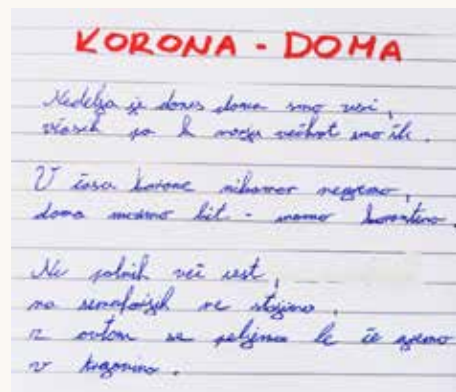 KORONA - DOMA
Nedelja je danes doma smo vsi,
včasih pa k morju večkrat smo šli.
V času korone nikamor negremo,
doma moramo bit - mamo karanteno.
Ni polnih več cest,
na semaforjih ne stojimo,
z avtom se peljemo le če gremo
v trgovino.